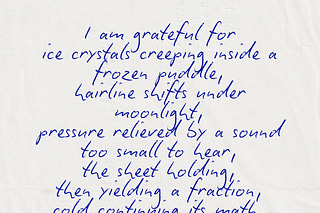 I am grateful for
ice crystals creeping inside a
frozen puddle,
hairline shifts under
moonlight,
pressure relieved by a sound
too small to hear,
the sheet holding,
then yielding a fraction,
cold continuing its math